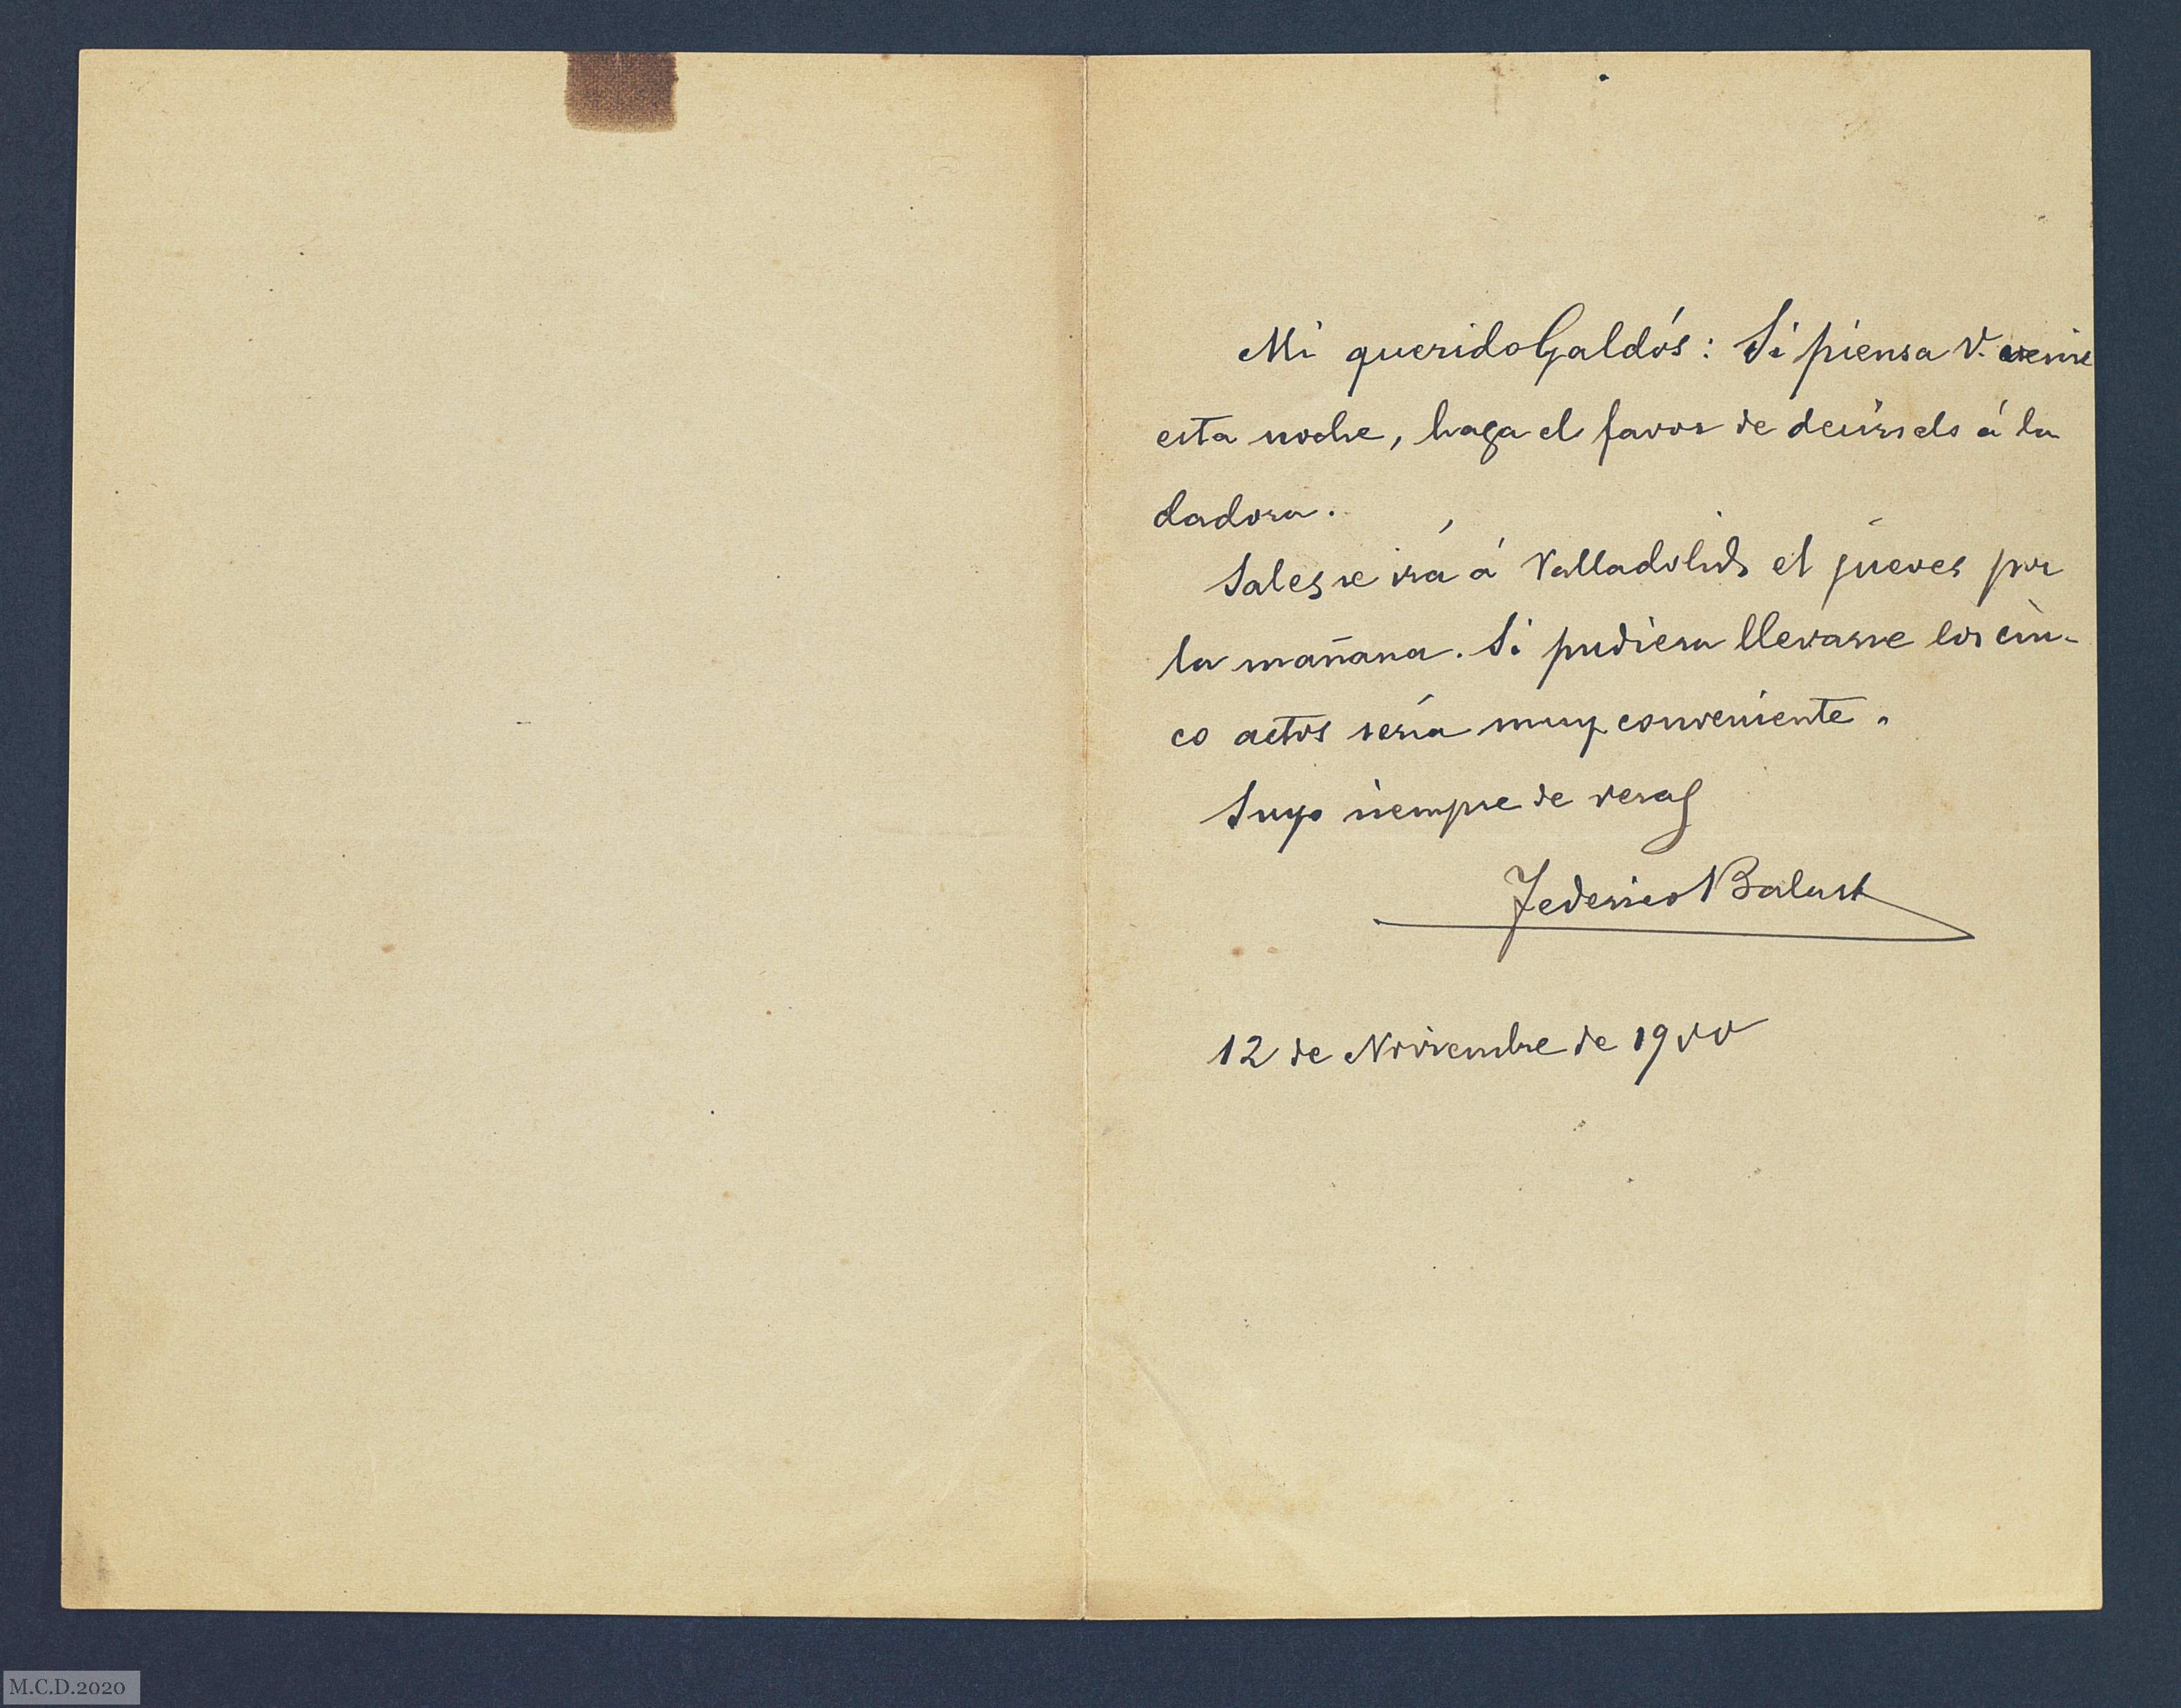 Mi querido Galdós: Si piensa V. venir
esta noche, haga el favor de decírselo á la
dadora.
Sales se irá á Valladolid el jueves por
la mañana. Si pudiera llevarse los cin-
co actos sería muy conveniente.
Suyo siempre de veras
Federico Balart
12 de Noviembre de 1900
M.C.D.2020